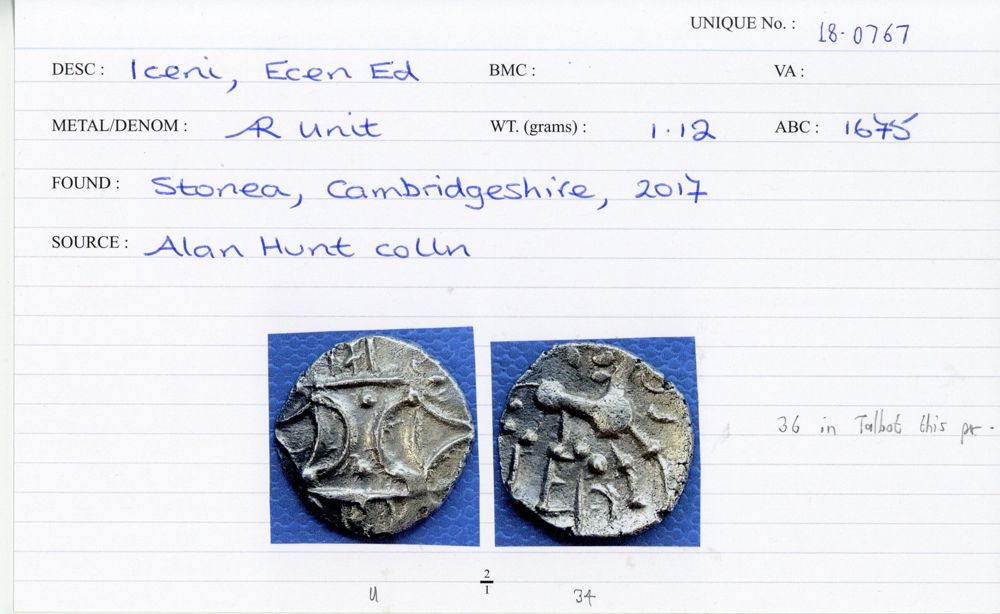 UNIQUE No. : 18-0767
DESC : Iceni, Ecen Ed BMC : VA :
METAL/DENOM : AR Unit WT. (grams) : 1.12 ABC : 1675
FOUND : Stonea, Cambridgeshire, 2017
SOURCE : Alan Hunt colln
36 in Talbot this pr.
2
1
U 34